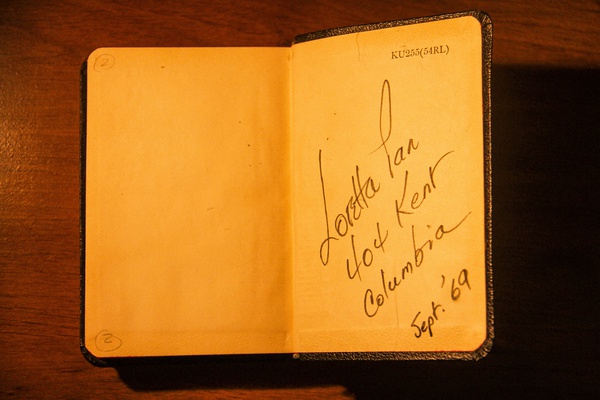 2
2
KU255(54RL)
Loretta Pan
404 Kent
Columbia
Sept. '69